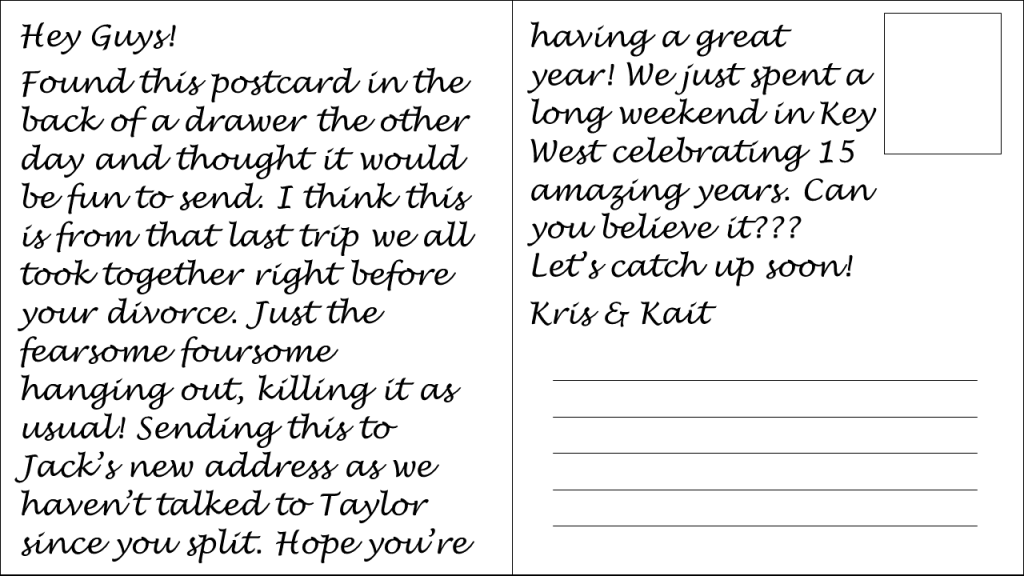 Hey Guys!
Found this postcard in the
back of a drawer the other
day and thought it would
be fun to send. I think this
is from that last trip we all
took together right before
your divorce. Just the
fearsome foursome
hanging out, killing it as
usual! Sending this to
Jack's new address as we
haven't talked to Taylor
since you split. Hope you're
having a great
year! We just spent a
long weekend in Key
West celebrating 15
amazing years. Can
you believe it???
Let's catch up soon!
Kris & Kait